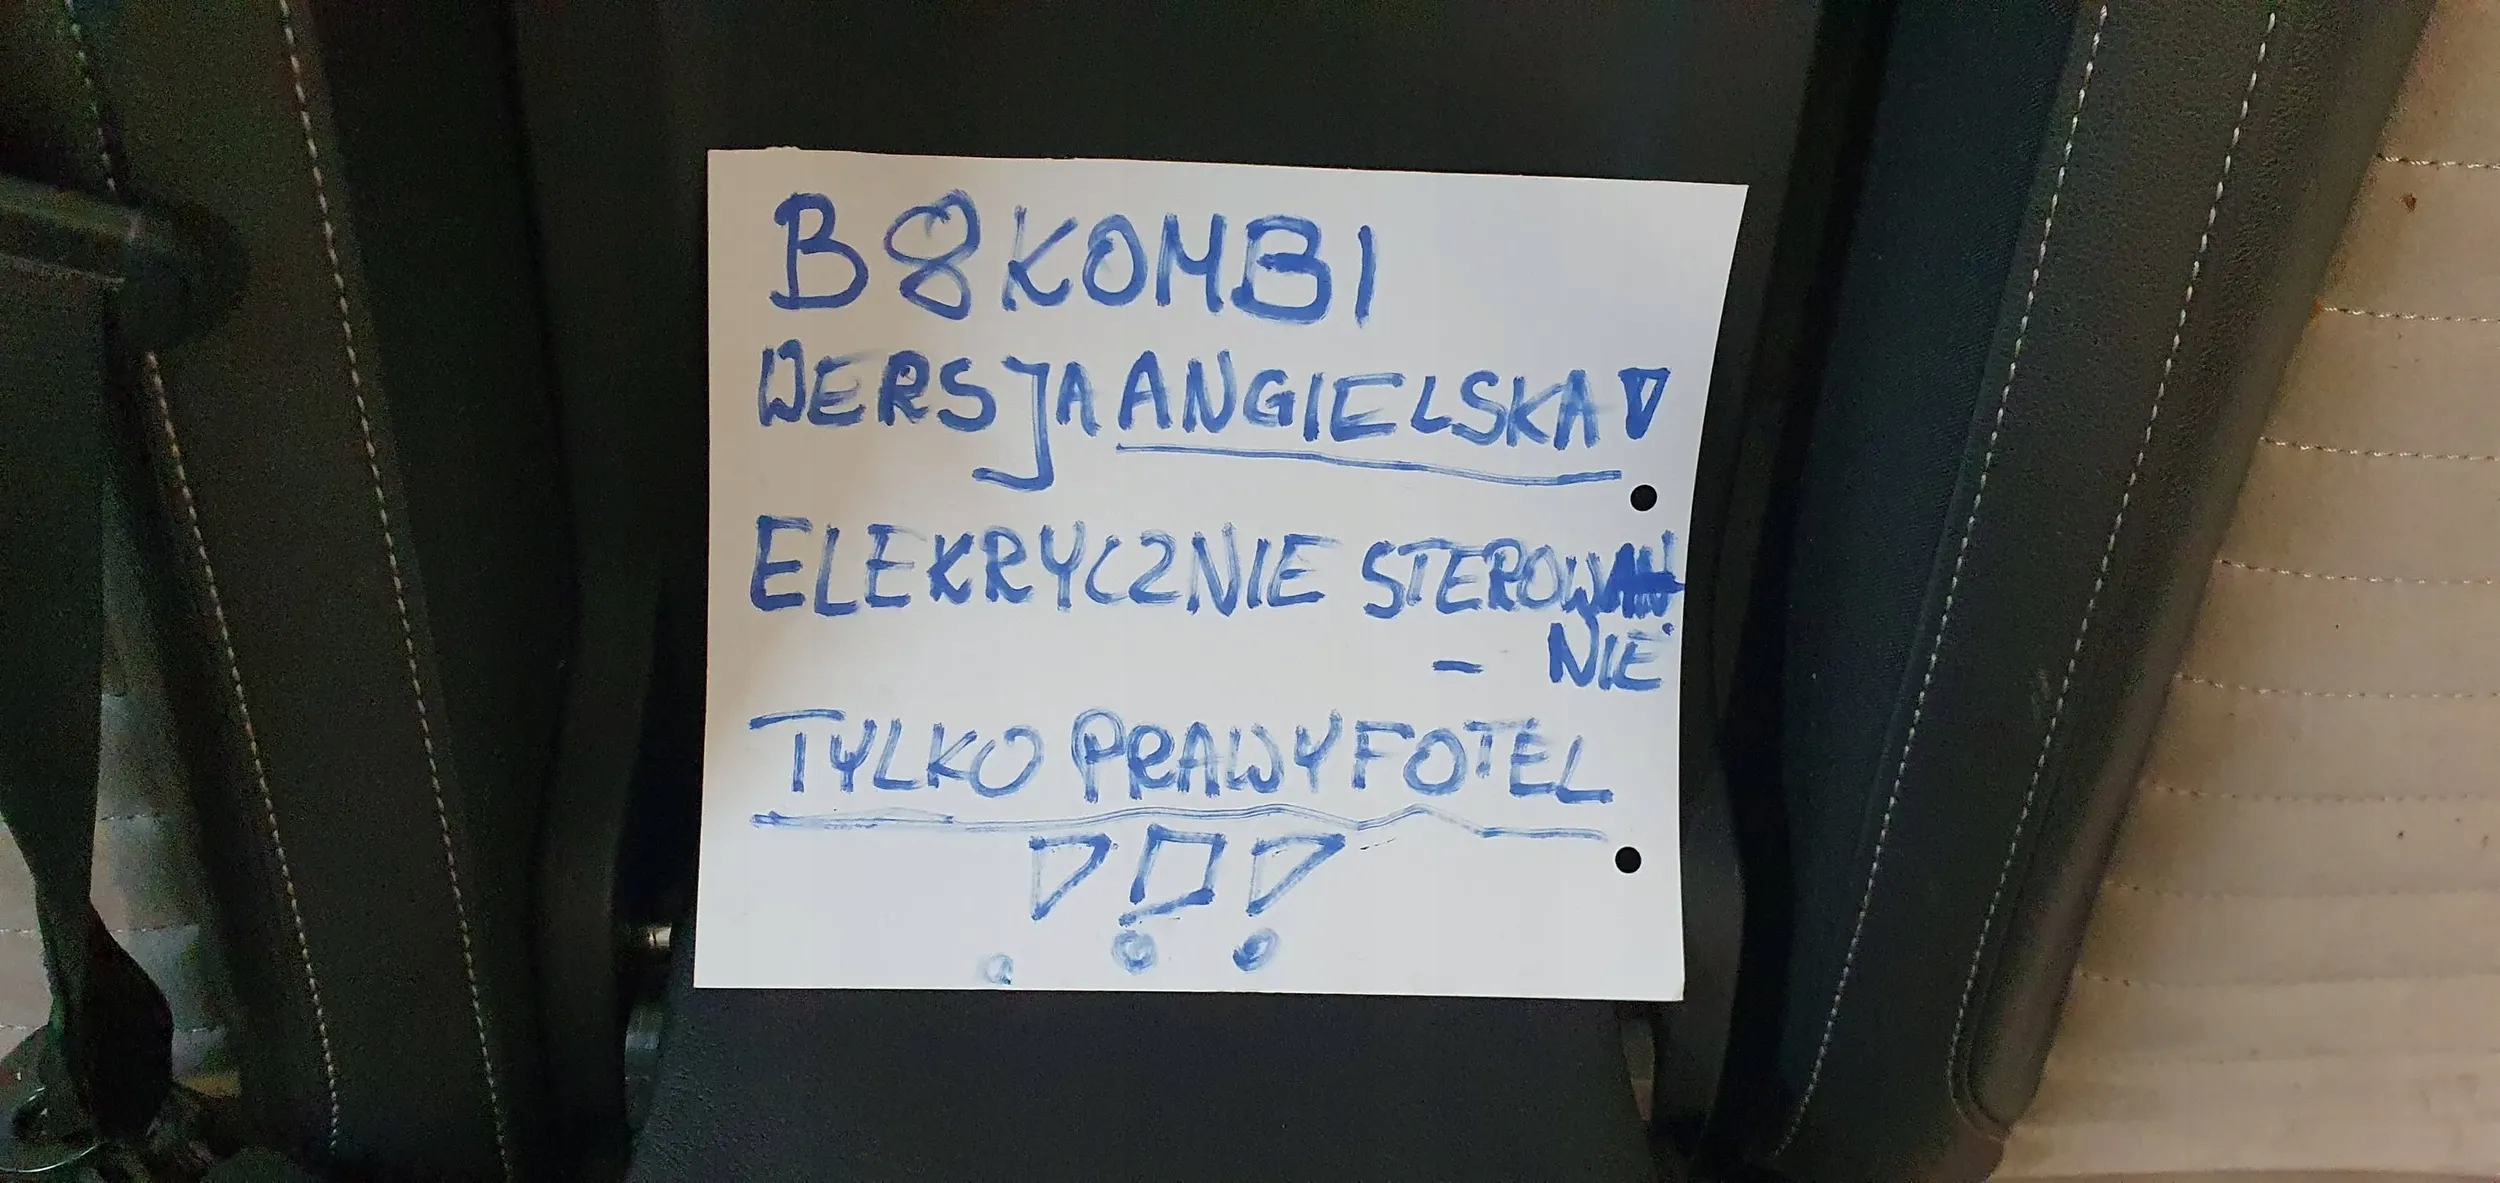 B8 KOMBI
WERSJA ANGIELSKA!
ELEKRYCZNIE STEROWAN
- NIE
TYLKO PRAWY FOTEL
!!!